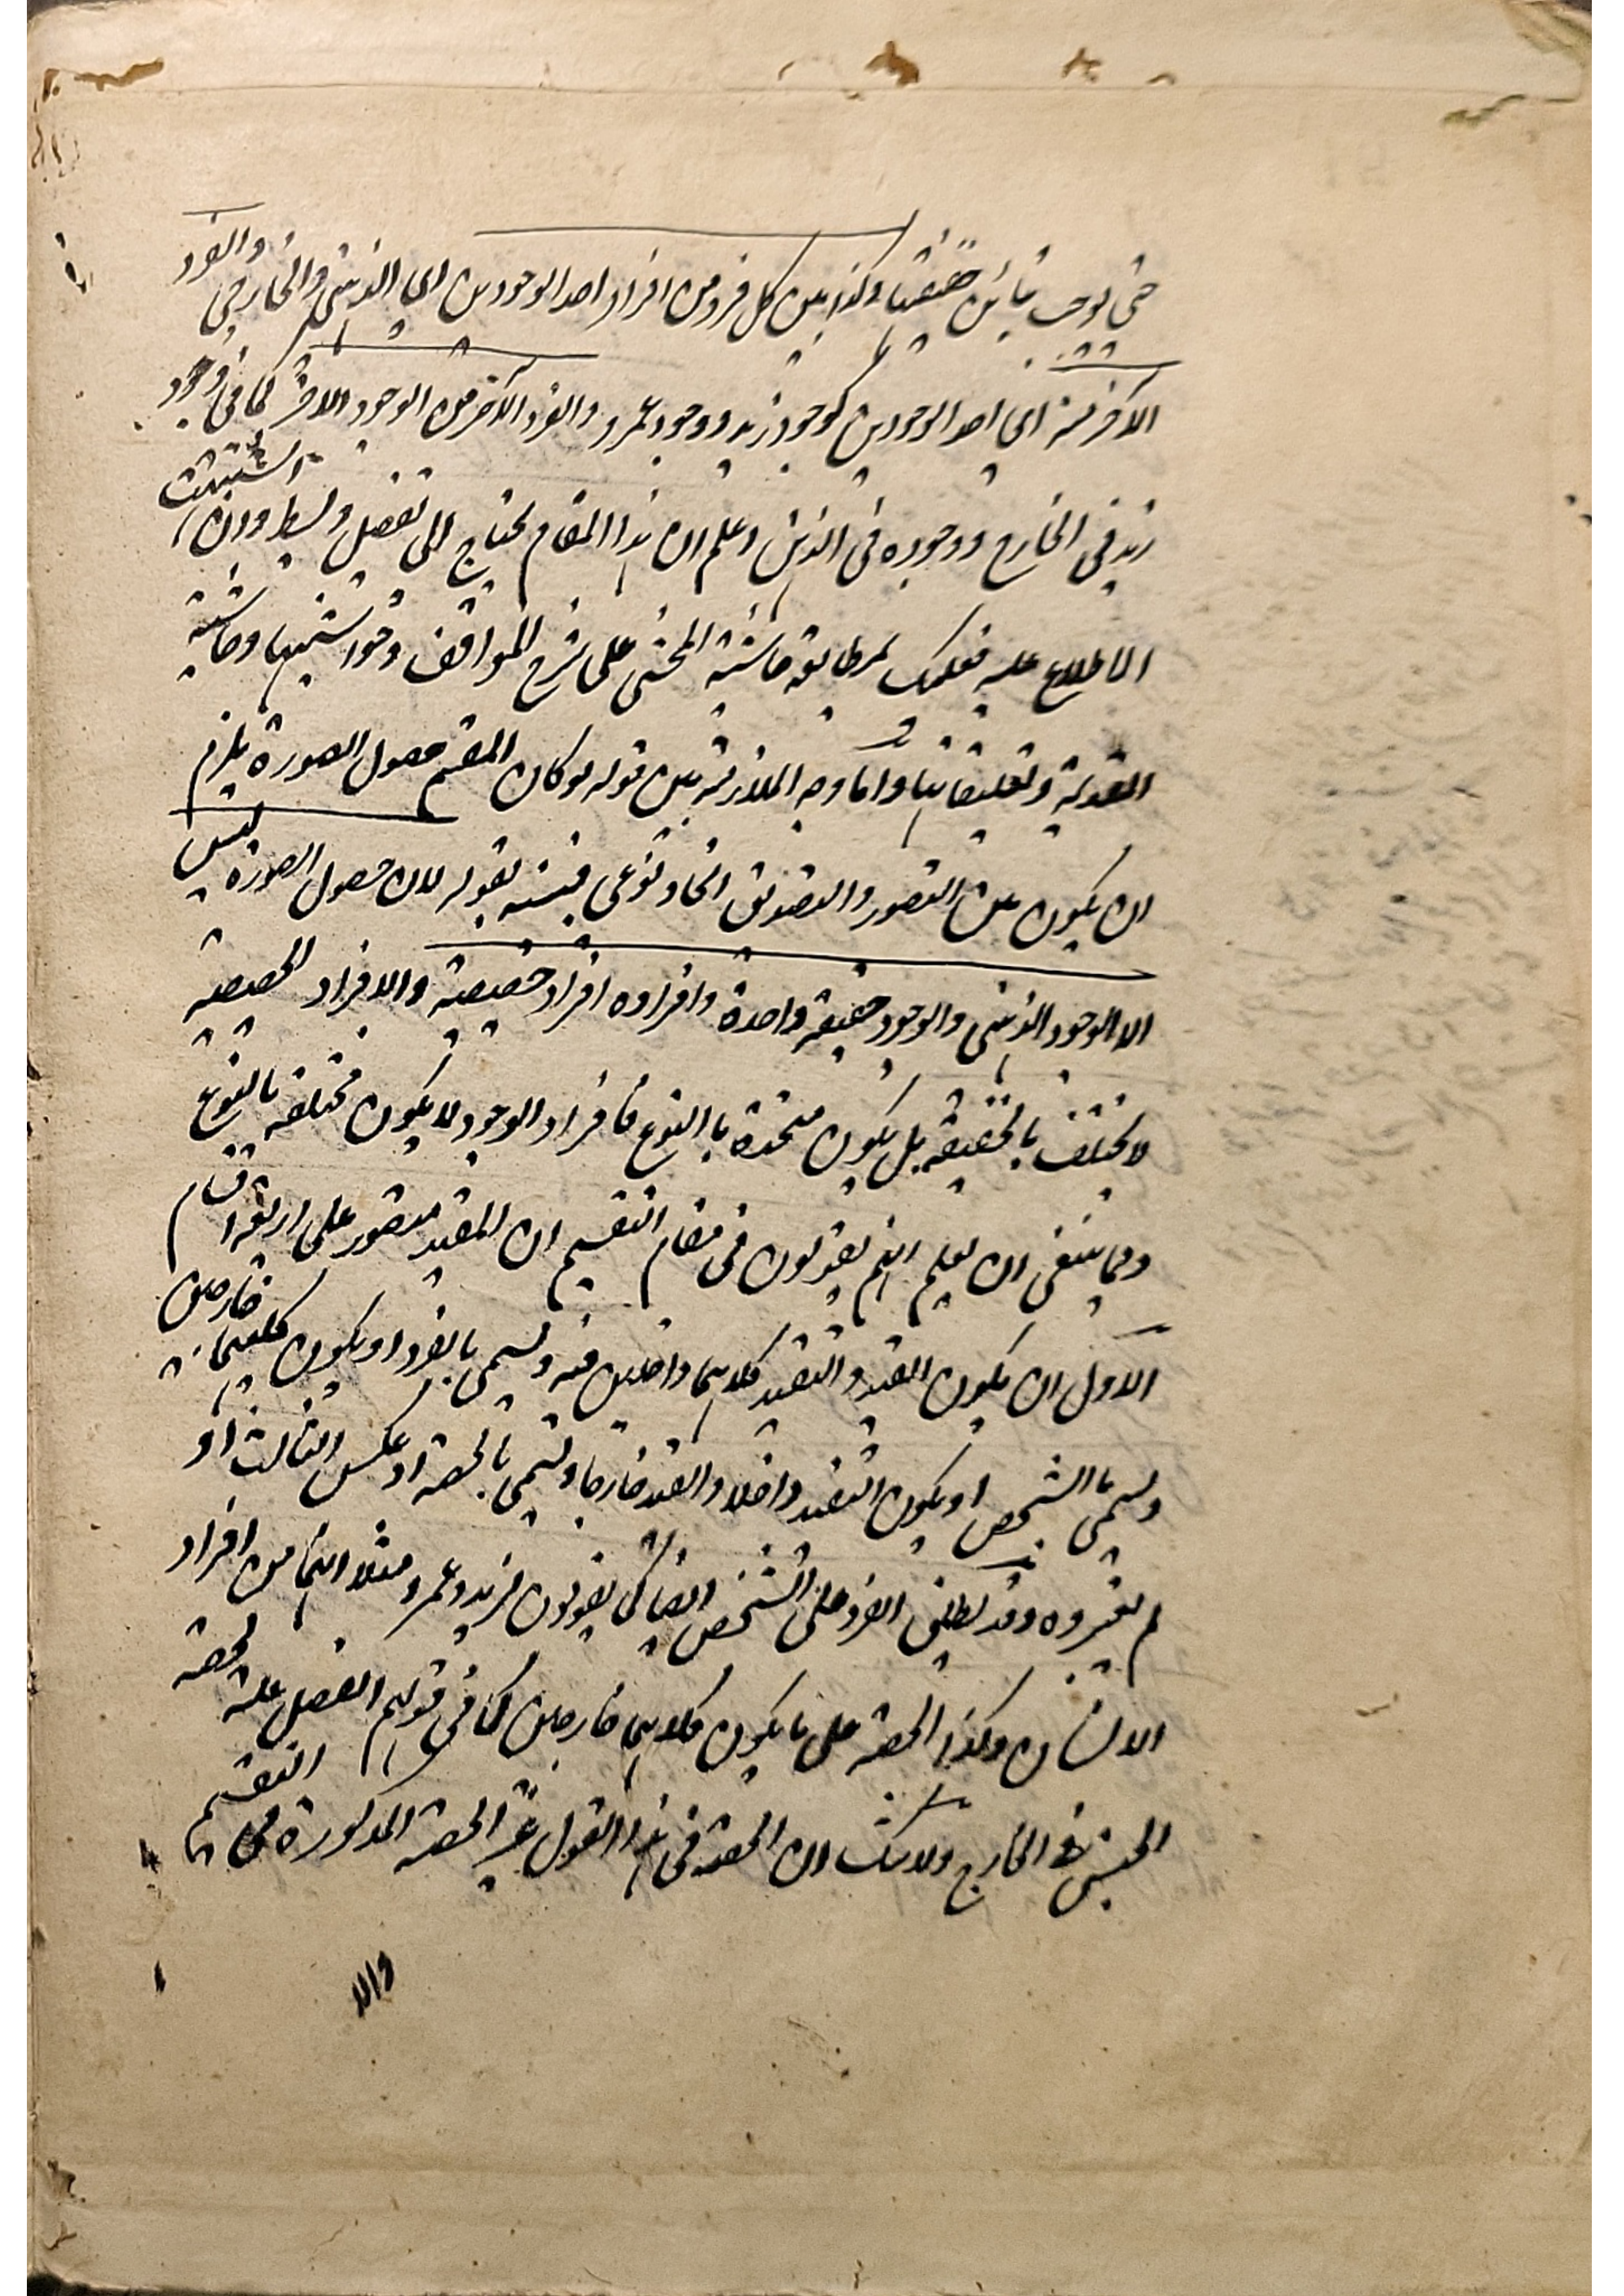 حتى يوجب تباين حقيقتها وكذا بين كل فرد من افراد احد الوجودين اي الذهني والخارجي والفرد
الآخر منه اي احد الوجودين كوجود زيد ووجود عمرو والفرد الآخر من الوجود الآخر كما في وجود
زيد في الخارج ووجوده في الذهن واعلم ان هذا المقام يحتاج الى تفصيل وبسط وان اشتهيت
الاطلاع عليه فعليك بمطالعة حاشية المحشى على شرح المواقف وحواشيها وحاشية
القديمة وتعليقاتها واما وجه الملازمة بين قوله لو كان المقسم حصول الصورة يلزم
ان يكون بين التصور والتصديق اتحاد نوعي فبينه بقوله لان حصول الصورة ليس
الا الوجود الذهني والوجود حقيقة واحدة وافراده افراد حصصية والافراد الحصصية
لا يختلف بالحقيقة بل يكون متحدة بالنوع فافراد الوجود لا يكون مختلفة بالنوع
ومما ينبغي ان يعلم انهم يقولون في مقام التقسيم ان المقيد متصور على اربعة اقسام
الاول ان يكون القيد والتقييد كلاهما داخلين فيه ويسمى بالفرد او يكون كليهما خارجين
ويسمى بالشخص او يكون التقييد داخلا والقيد خارجا ويسمى بالحصة او عكس الثالث او
لم يعتبروه وقد يطلق الفرد على الشخص ايضا كما يقولون لزيد وعمرو مثلا انهما من افراد
الانسان وكذا الحصة على ما يكون كلاهما خارجين كما في قولهم الفصل علة لحصة
الجنس في الخارج ولا شك ان الحصة في هذا القول غير الحصة المذكورة في التقسيم
والا